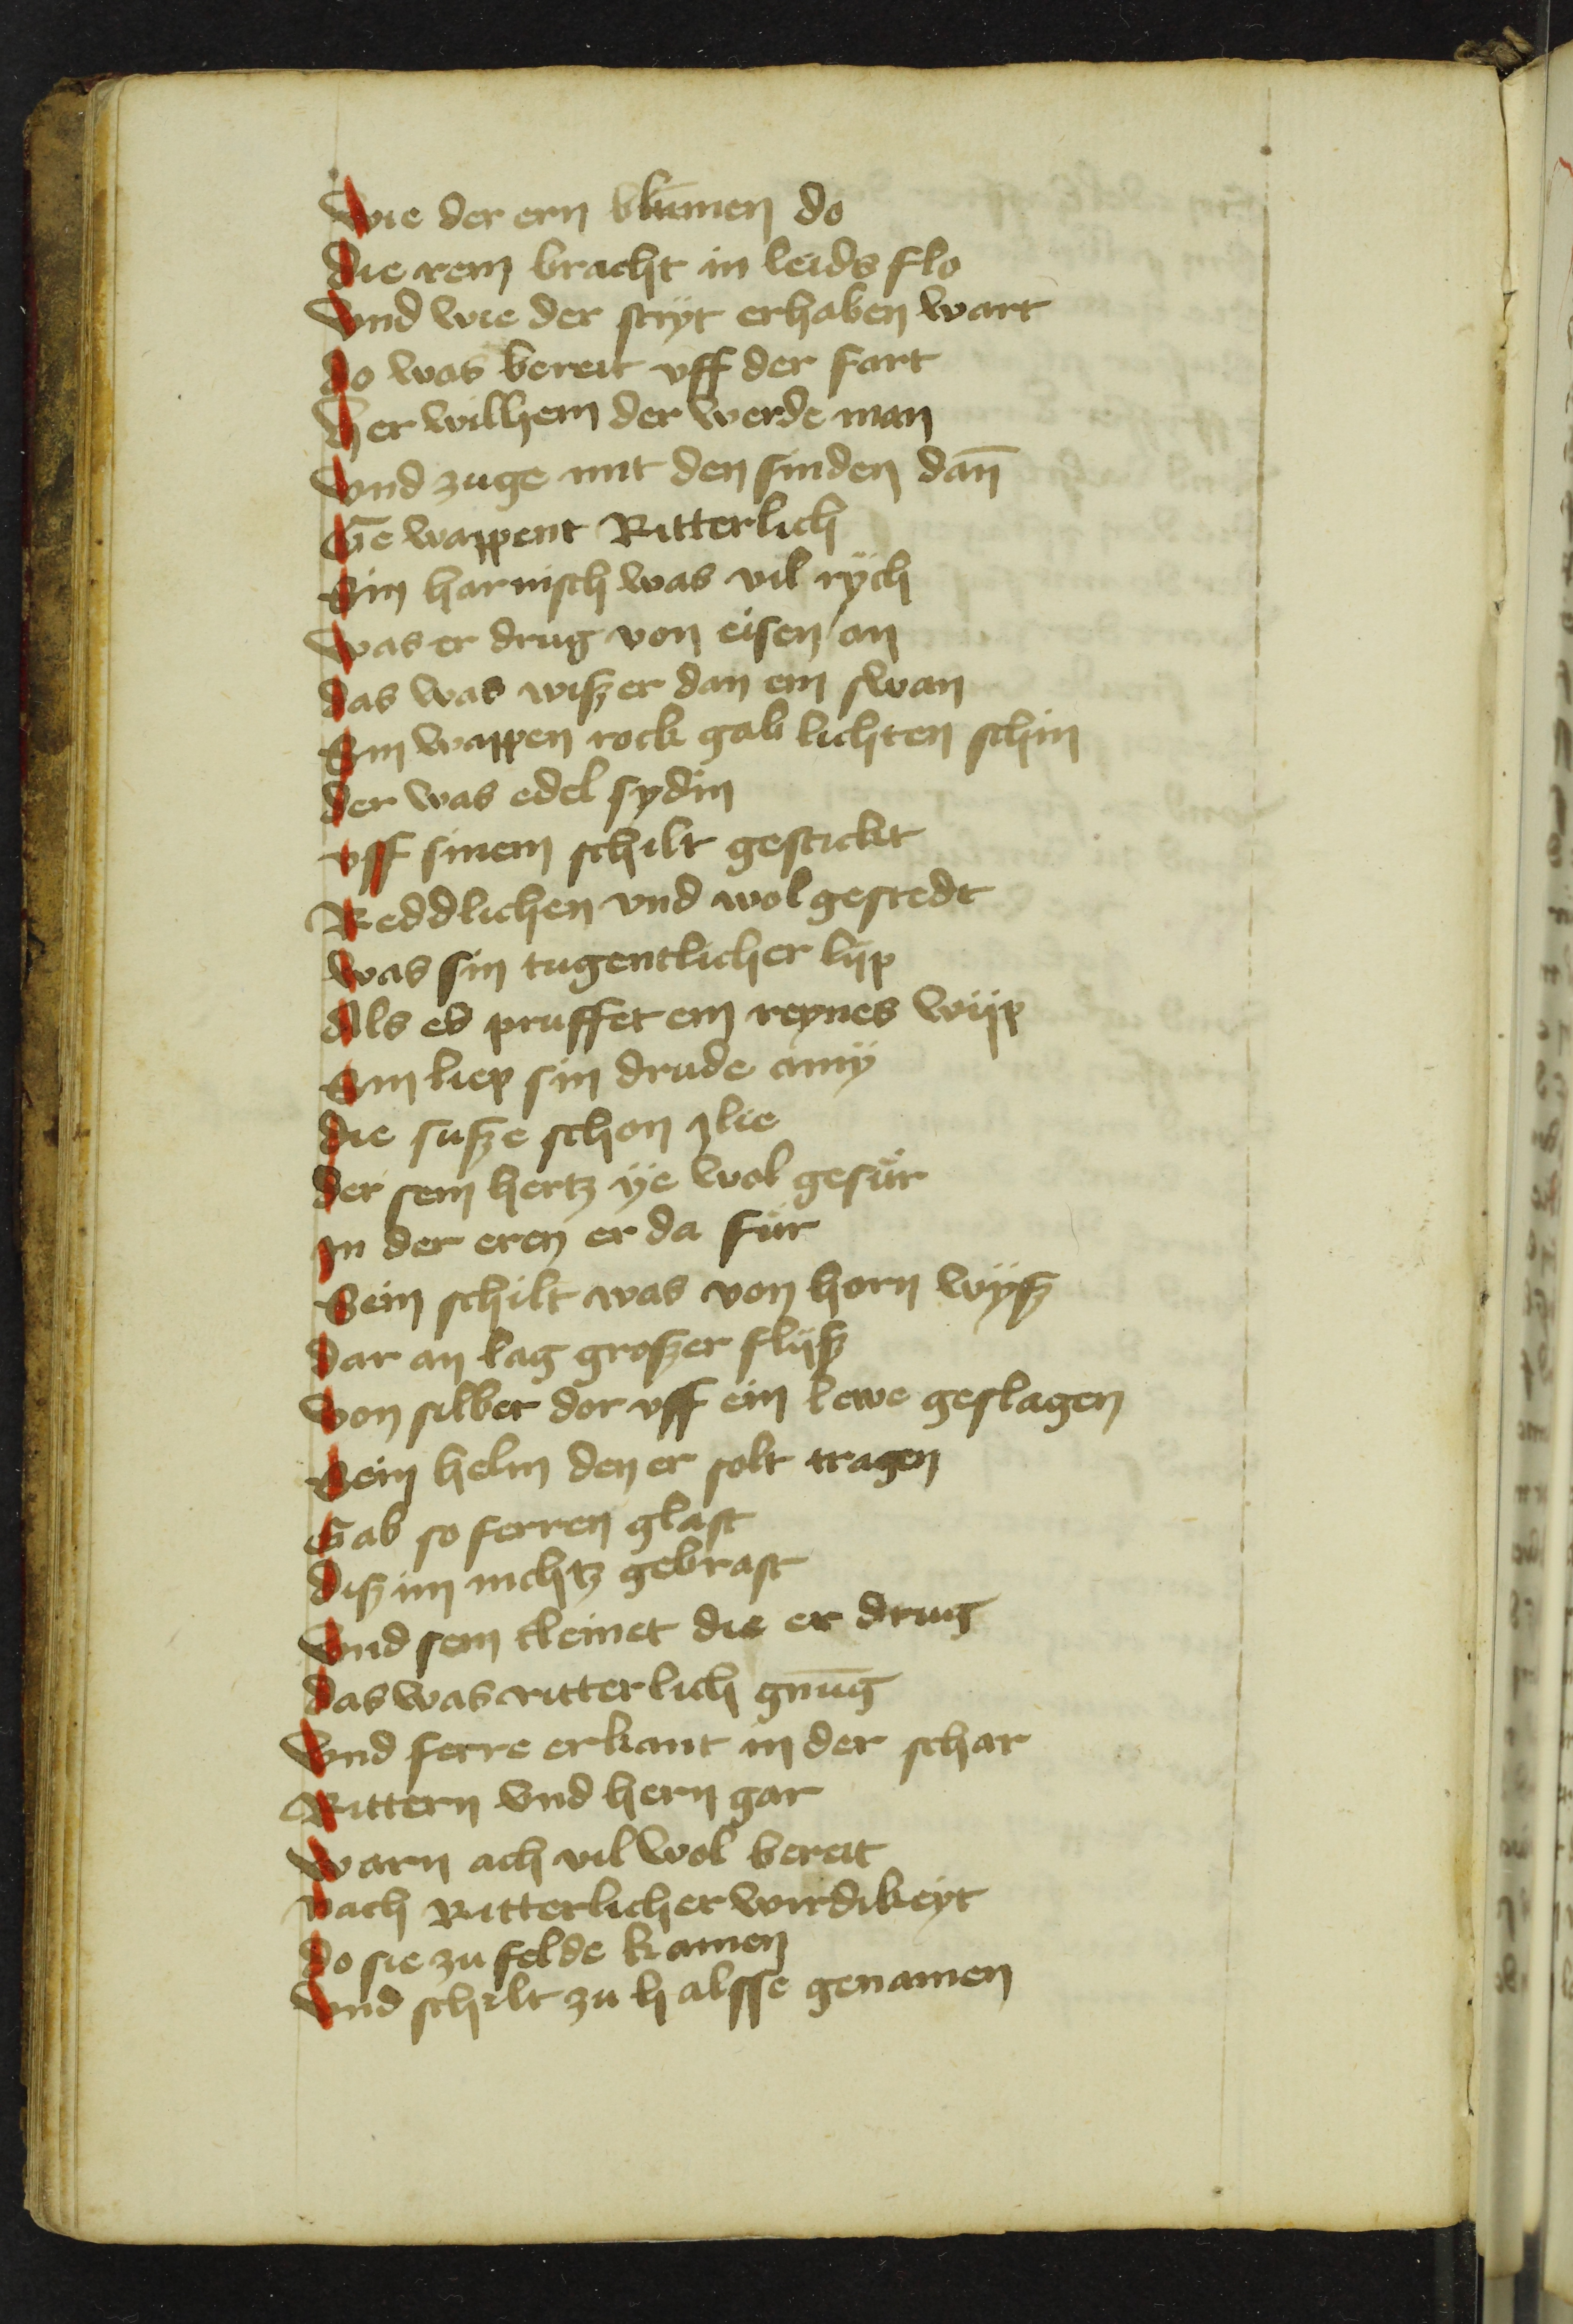 Wie der ern blumen do
die rein bracht in leids flo
Vnd wie der stryt erhaben wart
do was bereit vff der fart
Her wilhem der werde man
Vnd zuge mit den sinden dan̄
Ge wappent Ritterlich
Sin harnisch was vil rÿch
Was er drug von eisen an
das was wiszer dan ein swan
Sin wappen rock gab lichten schin
der was edel sydin
vff sinem schilt gestickt
Reddlichen vnd wol gestedt
Was sin tugentlicher lijp
Als es pruffet ein reynes wijp
Sin liep sin drude amÿ
die susze schon ylie
der sein hertz ÿe wol gesür
In der eren er da für
Sein schilt was von horn wÿsz
dar an lag groszer flijsz
Von silber dor vff ein lewe geslagen
Sein helm den er solt tragen
Gab so ferren glast
disz im nichtz gebrast
Vnd sein kleinet die er drug
das was ritterlich gnūg
Vnd ferre erkant in der schar
Rittern vnd hern gar
Warn ach vil wol bereit
Nach Ritterlicher wirdikeyt
do sie zu felde kamen
Vnd schilt zu halsse genamen